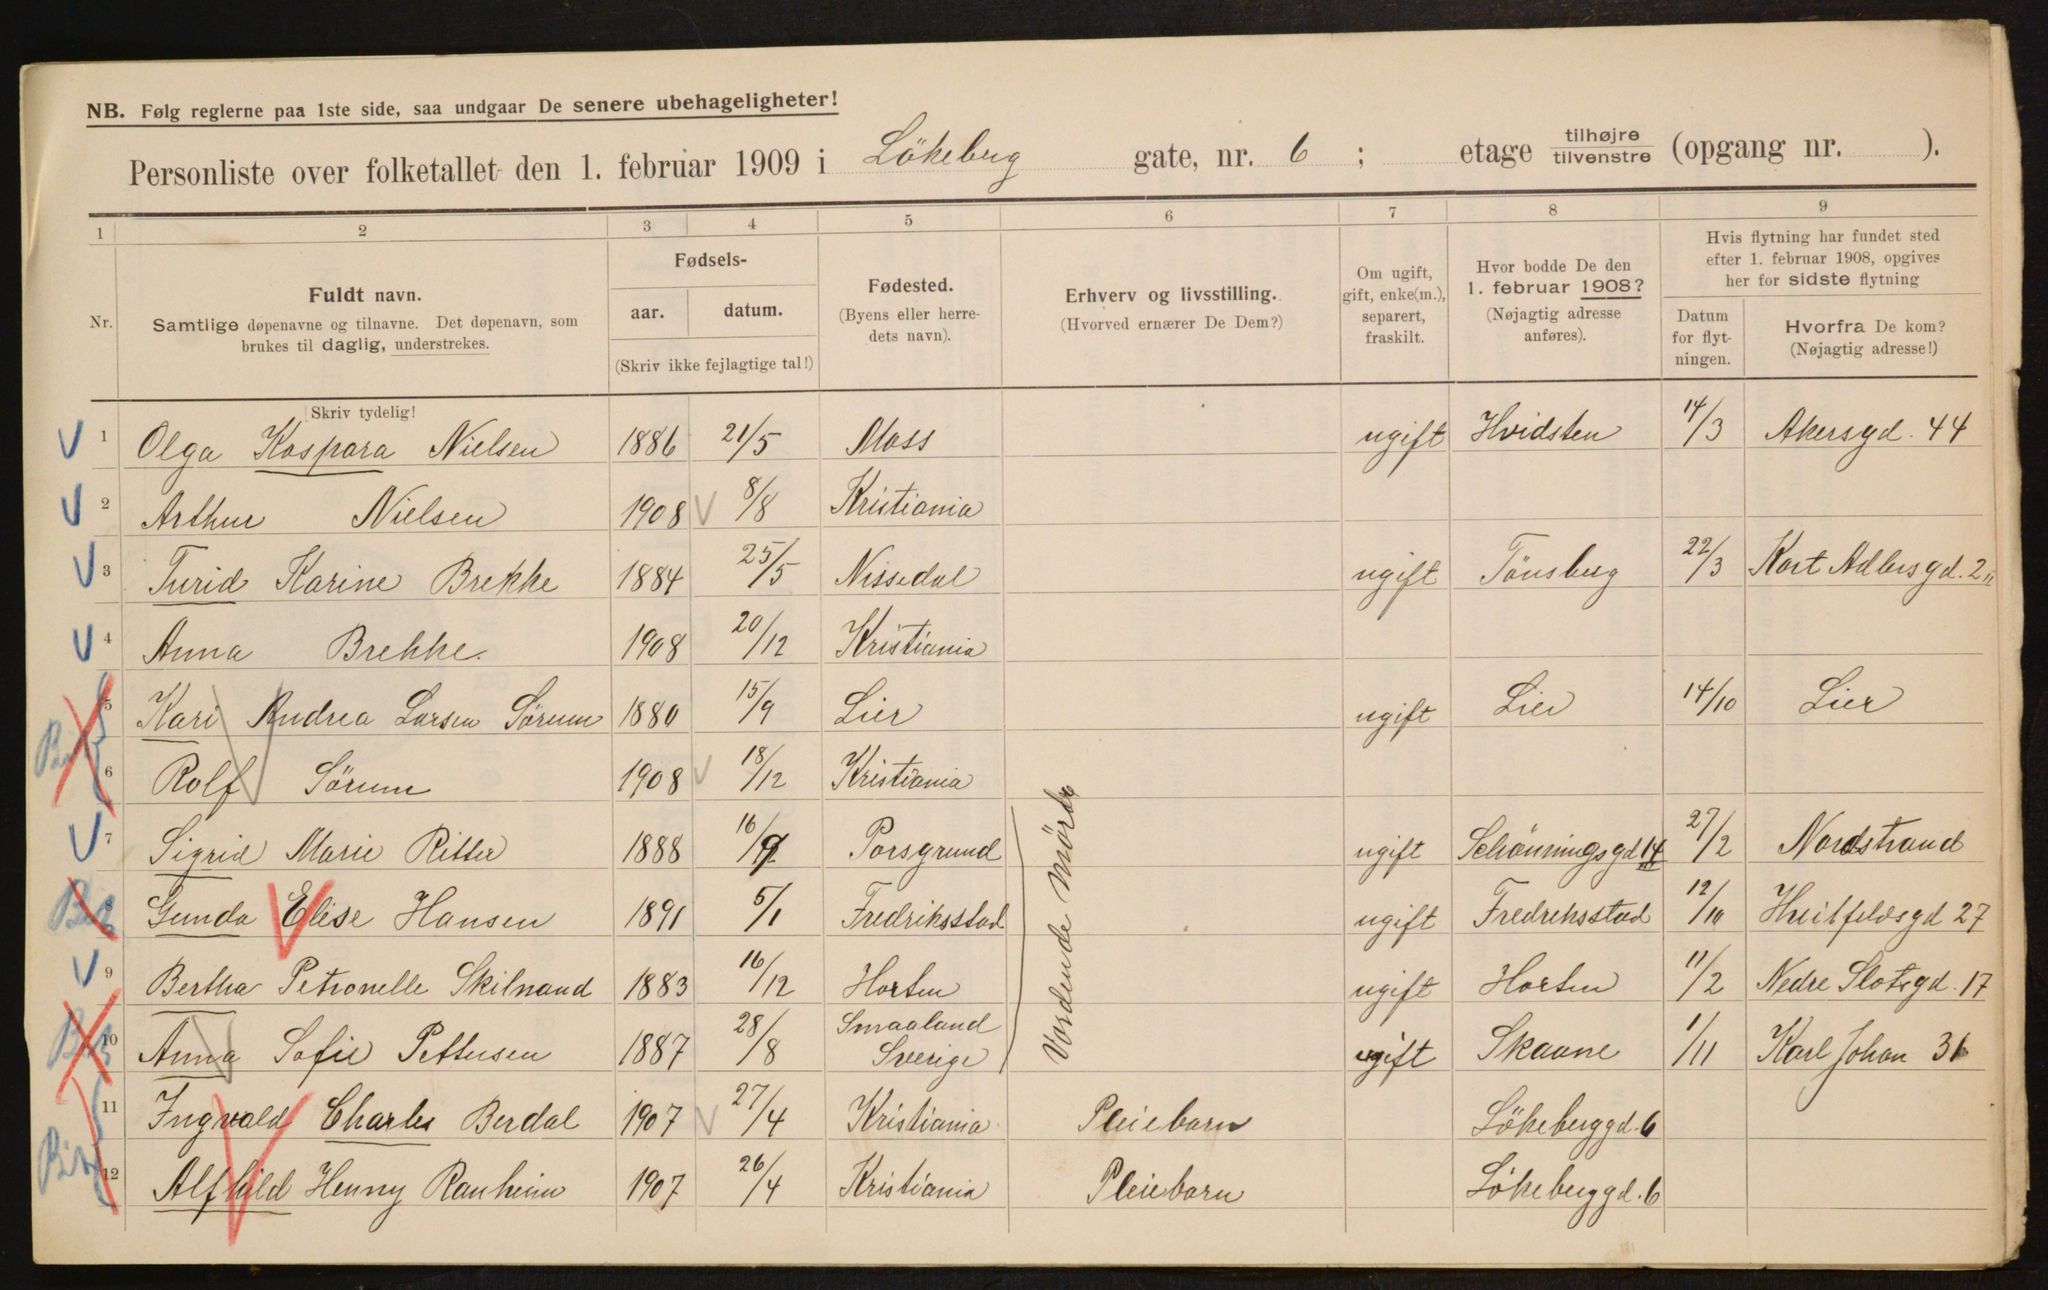 NB. Følg reglerne paa 1ste side, saa undgaar De senere ubehageligheter!
Personliste over folketallet den 1. februar 1909 i Lökeberg gate, nr. 6 ; etage tilhøjre / tilvenstre (opgang nr. ).
1 2 3 4 5 6 7 8 9
Nr.
Fuldt navn.
Samtlige døpenavne og tilnavne. Det døpenavn, som
brukes til daglig, understrekes.
Skriv tydelig!
Fødsels-
aar. datum.
(Skriv ikke fejlagtige tal!)
Fødested.
(Byens eller herre-
dets navn).
Erhverv og livsstilling.
(Hvorved ernærer De Dem?)
Om ugift,
gift, enke(m.),
separert,
fraskilt.
Hvor bodde De den
1. februar 1908?
(Nøjagtig adresse
anføres).
Hvis flytning har fundet sted
efter 1. februar 1908, opgives
her for sidste flytning
Datum
for flyt-
ningen.
Hvorfra De kom?
(Nøjagtig adresse!)
1 Olga Kaspara Nielsen 1886 21/5 Moss ugift Hvidsten 14/3 Akersgd. 44
2 Arthur Nielsen 1908 8/8 Kristiania
3 Turid Karine Brekke 1884 25/5 Nissedal ugift Tönsberg 22/3 Kort Adlersgd. 2 II
4 Anna Brekke. 1908 20/12 Kristiania
5 Kari Andrea Larsen Sörum 1880 15/9 Lier ugift Lier 14/10 Lier
6 Rolf Sörum 1908 18/12 Kristiania
7 Sigrid Marie Ritter 1888 16/9 Porsgrund ugift Schönningsgd 14 27/2 Nordstrand
8 Gunda Elise Hansen 1891 5/1 Fredriksstad ugift Fredriksstad 12/10 Hvitfeldsgd 27
9 Bertha Petronelle Skilnand 1883 16/12 Horten ugift Horten 11/2 Nedre Slotsgd. 17
10 Anna Sofie Pettersen 1887 28/8 Smaaland Sverige ugift Skaane 1/11 Karl Johan 31
Vordende mødre
11 Ingvald Charles Berdal 1907 27/4 Kristiania Pleiebarn Lökeberggd. 6
12 Alfhild Henny Ranheim 1907 26/4 Kristiania Pleiebarn Lökeberggd. 6